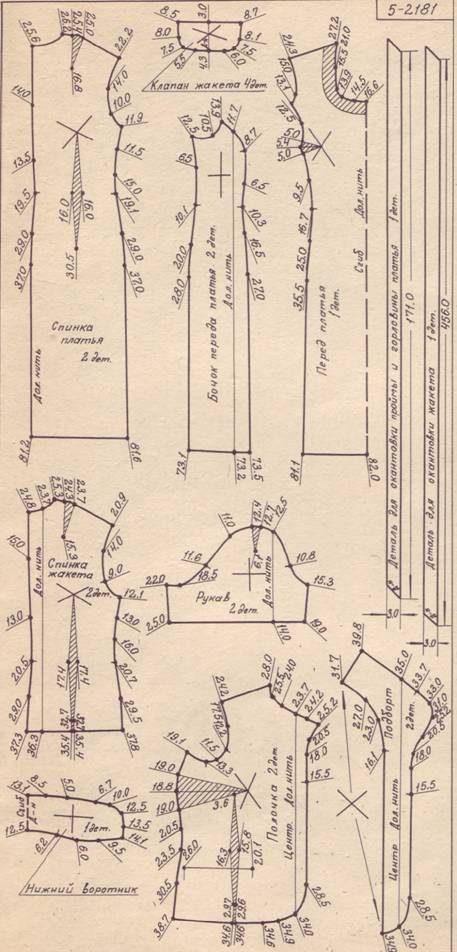 5-2181
25.6
26.2
25.4
25.0
22.2
16.8
14.0
10.0
14.0
11.9
13.5
11.5
19.5
15.0
19.1
16.0
16.0
29.0
29.0
37.0
37.0
30.5
Спинка
платья
2 дет.
Дол. нить
81.2
81.6
8.5
3.0
8.7
8.0
8.1
7.5
7.5
5.5
4.3
6.0
Клапан жакета 4 дет.
12.5
10.5
13.9
11.7
8.7
6.5
6.5
10.1
10.3
20.0
16.5
28.0
27.0
Бочок переда платья 2 дет.
Дол. нить
73.1
73.2
73.5
24.3
27.2
21.0
15.5
13.9
14.5
16.6
15.0
13.1
12.5
5.0
5.0
9.5
16.7
25.0
35.5
Перед платья
1 дет.
Сгиб
Дол. нить
81.1
82.0
Деталь для окантовки проймы и горловины платья 1 дет.
171.0
Деталь для окантовки жакета 1 дет.
456.0
3.0
3.0
24.8
23.7
25.3
24.3
23.7
20.9
15.3
15.0
14.0
9.0
12.1
Спинка
жакета
2 дет.
Дол. нить
13.0
13.0
16.0
20.5
20.7
17.4
17.4
29.0
29.5
37.3
36.3
35.4
35.4
37.8
12.4
12.7
12.5
11.0
6.1
11.6
18.5
10.8
22.0
15.3
Рукав
2 дет.
Дол. нить
25.0
14.0
19.0
13.1
5.0
6.7
10.0
12.5
13.5
14.1
9.5
6.0
6.2
12.5
Сгиб
1 дет.
Нижний воротник
28.0
25.5
24.0
23.7
24.2
25.2
24.2
20.5
18.0
15.5
19.1
11.5
13.3
19.0
18.8
19.0
3.6
20.5
23.5
26.0
16.3
15.8
20.1
30.5
38.7
34.6
34.6
34.9
34.0
28.5
Полочка 2 дет.
Центр
Дол. нить
39.8
31.7
35.0
33.7
33.0
27.0
23.0
16.1
18.0
15.5
28.5
34.0
Подборт
2 дет.
Центр
Дол. нить